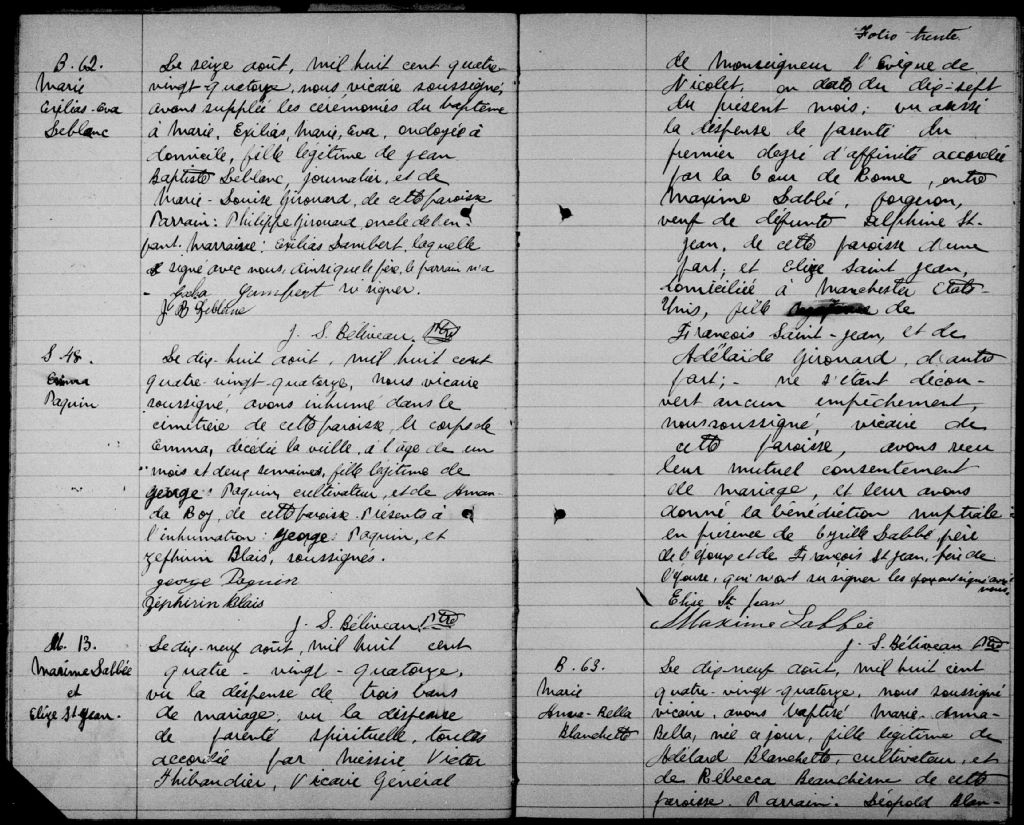 B. 62.
Marie
Exilias-Eva
Leblanc
Le seize août, mil huit cent quatre
vingt-quatorze, nous vicaire soussigné,
avons suppléé les cérémonies du baptême
à Marie, Exilias, Marie, Eva, ondoyée à
domicile, fille légitime de Jean
Baptiste Leblanc, journalier, et de
Marie-Louise Girouard, de cette paroisse
Parrain: Philippe Girouard, oncle de l'en-
fant. Marraine: Exilias Lambert, laquelle
a signé avec nous, ainsi que le père, le parrain n'a
Lambert su signer.
J B Leblanc
J. S. Béliveau, Ptre
S. 48.
Emma
Paquin
Le dix-huit août, mil huit cent
quatre-vingt-quatorze, nous vicaire
soussigné, avons inhumé dans le
cimetière de cette paroisse, le corps de
Emma, décédée la veille, à l'âge de un
mois et deux semaines, fille légitime de
George Paquin, cultivateur, et de Aman-
da Boy, de cette paroisse. Présents à
l'inhumation: George: Paquin, et
Zéphirin Blais, soussignés.
George Paquin
Zéphirin Blais
J. S. Béliveau, Ptre
M. 13.
Maxime Labbée
et
Elize St Jean.
Le dix-neuf août, mil huit cent
quatre-vingt-quatorze,
vu la dispense de trois bans
de mariage, vu la dispense
de parenté spirituelle, toutes
accordée par Messire Victor
Thibaudier, Vicaire Général
Folio trente
de Monseigneur l'Evêque de
Nicolet, en date du dix-sept
du présent mois; vu aussi
la dispense de parenté du
premier degré d'affinité accordée
par la Cour de Rome, entre
Maxime Labbé, forgeron,
veuf de défunte Delphine St-
Jean, de cette paroisse d'une
part; et Elize Saint Jean,
domiciliée à Manchester Etats-
Unis, fille de
François Saint-Jean, et de
Adélaïde Girouard, d'autre
part; - ne s'étant décou-
vert aucun empêchement,
nous soussigné, vicaire de
cette paroisse, avons reçu
leur mutuel consentement
de mariage, et leur avons
donné la bénédiction nuptiale
en présence de Cyrille Labbé père
de l'époux et de François St Jean, père de
l'épouse, qui n'ont su signer les époux ont signé avec
nous.
Elise St Jean
Maxime Labbée
J. S. Béliveau Ptre
B. 63.
Marie
Anna-Bella
Blanchette
Le dix-neuf août, mil huit cent
quatre-vingt-quatorze, nous soussigné
vicaire, avons baptisé Marie-Anna-
Bella, née ce jour, fille légitime de
Adélard Blanchette, cultivateur, et
de Rébecca Beauchêsne de cette
paroisse. Parrain: Léopold Blan-